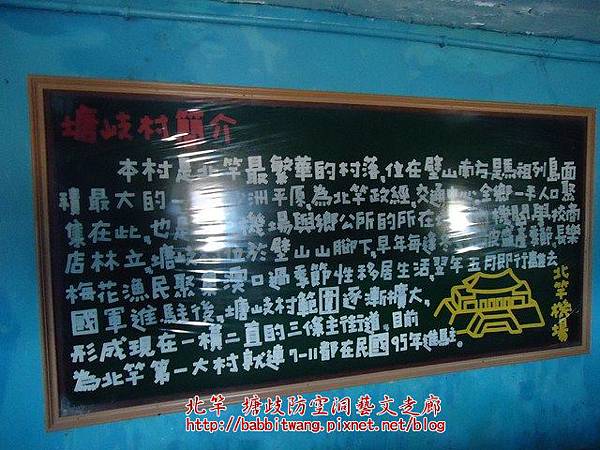 塘岐村簡介
本村是北竿最繁華的村落,位在壁山南方是馬祖列島面
積最大的一 沙洲平原,為北竿政經,交通中心全鄉一半人口聚
集在此,也是 機場與鄉公所的所在 機關學校商
店林立,塘岐 位於壁山山腳下,早年每逢冬 盛產季節,長樂
梅花漁民聚集 澳口過季節性移居生活,翌年五月即行離去
國軍進駐後,塘岐村範圍逐漸擴大,
形成現在一橫二直的三條主街道。目前
為北竿第一大村就連7-11都在民國95年進駐。
北竿機場
北竿 塘歧防空洞藝文走廊
http://babbitwang.pixnet.net/blog